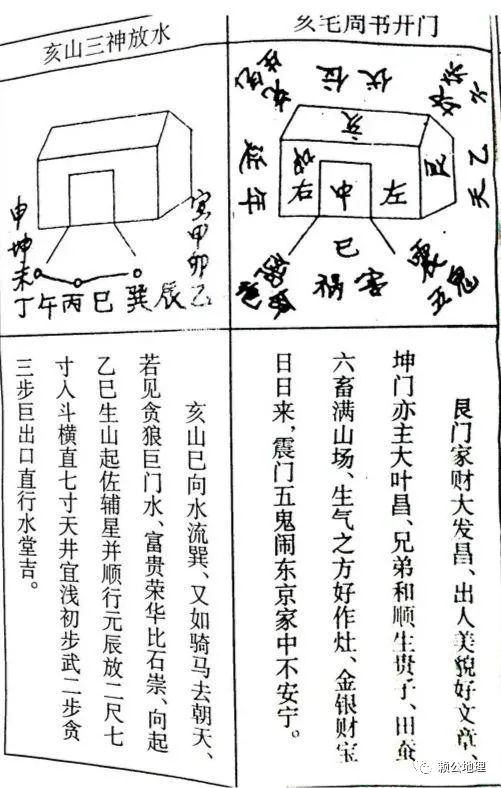 亥宅周书开门
伏位
天乙
生
艮
亥
左
中
右
巳
祸害
震
五鬼
艮门家财大发昌、出人美貌好文章、
坤门亦主大叶昌、兄弟和顺生贵子、田蚕
六畜满山场、生气之方好作灶、金银财宝
日日来，震门五鬼闹东京家中不安宁。
亥山三神放水
寅甲卯乙
辰
巽
巳
丙
午
丁
未
坤
申
亥山巳向水流巽、又如骑马去朝天、
若见贪狼巨门水、富贵荣华比石崇、向起
乙巳生山起佐辅星并顺行元辰放二尺七
寸人斗横直七寸天井宜浅初步武二步贪
三步巨出口直行水堂吉。
赖公地理